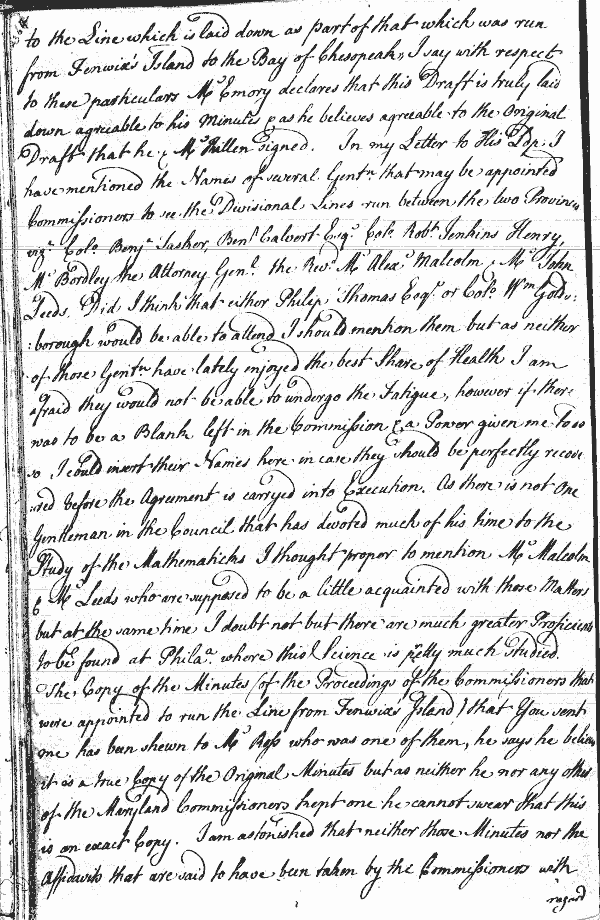 to the Line which is laid down as part of that which was run
from Fenwix's Island to the Bay of Chesopeak, I say with respect
to these particulars Mr. Emory declares that this Draft is truly laid
down agreable to his Minutes & as he believes agreeable to the Original
Draft that he & Mr. Killen signed. In my Letter to His Ldp. I
have mentioned the Names of several Gentn. that may be appointed
Commissioners to see the Divisional Lines run between the two Provinces
vizt. Colo. Benja. Tasker, Benj. Calvert Esqr. Colo. Robt. Jenkins Henry,
Mr. Bordley the Attorney Genl. the Revd. Mr. Alexr. Malcolm & Mr. John
Leeds. Did I think that either Philip Thomas Esqr. or Colo. Wm. Golds:
:borough would be able to attend I should mention them but as neither
of those Gentn. have lately enjoyed the best Share of Health I am
afraid they would not be able to undergo the Fatigue, however if there
was to be a Blank left in the Commission & a Power given me to do
so I could insert their Names here in case they should be perfectly recove
:ured before the Agreement is carryed into Execution. As there is not One
Gentleman in the Council that has devoted much of his time to the
Study of the Mathematicks I thought proper to mention Mr. Malcolm
& Mr. Leeds who are supposed to be a little acquainted with those Matters
but at the same time I doubt not but there are much greater Proficients
to be found at Phila. where this Science is pretty much Studied.
The Copy of the Minutes (of the Proceedings of the Commissioners that
were appointed to run the Line from Fenwix's Island) that You sent
me has been shewn to Mr. Ross who was one of them, he says he believes
it is a true Copy of the Original Minutes but as neither he nor any other
of the Maryland Commissioners kept one he cannot swear that this
is an exact Copy. I am astonished that neither those Minutes nor the
Affidavits that are said to have been taken by the Commissioners with
regard